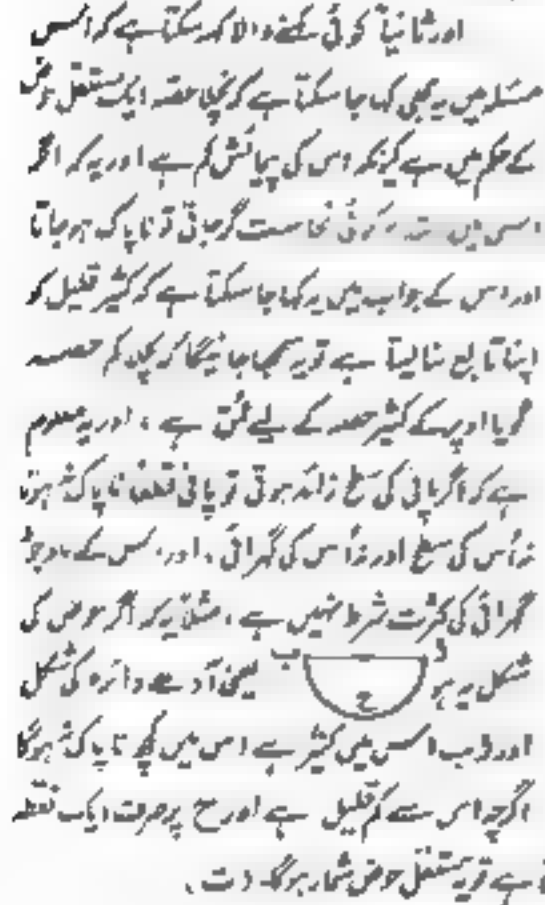 اور ثانیاً کوئی کہنے والا کہہ سکتا ہے کہ اس
مسئلہ میں یہ بھی کہا جا سکتا ہے کہ نچلا حصہ ایک مستقل حوض
کے حکم میں ہے کیونکہ اس کی پیمائش کم ہے اور یہ کہ اگر
اس میں کوئی نجاست گر جاتی تو ناپاک ہو جاتا
اور اس کے جواب میں یہ کہا جا سکتا ہے کہ کثیر قلیل کو
اپنا تابع بنا لیتا ہے تو یہ سمجھا جائیگا کہ نچلا کم حصہ
گویا اوپر کے کثیر حصہ کے لیے عمق ہے ، اور یہ معلوم
ہے کہ اگر پانی کی سطح زائد ہوتی تو پانی قطعاً ناپاک نہ ہوتا
نہ اُس کی سطح اور نہ اُس کی گہرائی ، اور اس کے باوجود
گہرائی کی کثرت شرط نہیں ہے ، مثلاً یہ کہ اگر حوض کی
شکل یہ ہو ا ب ح یعنی آدھے دائرہ کی شکل
اور ا ب اس میں کثیر ہے اس میں کچھ ناپاک نہ ہوگا
اگرچہ اس سے کم قلیل ہے اور ح پر صرف ایک نقطہ
ہے تو یہ مستقل حوض شمار ہوگا۔ (ت)